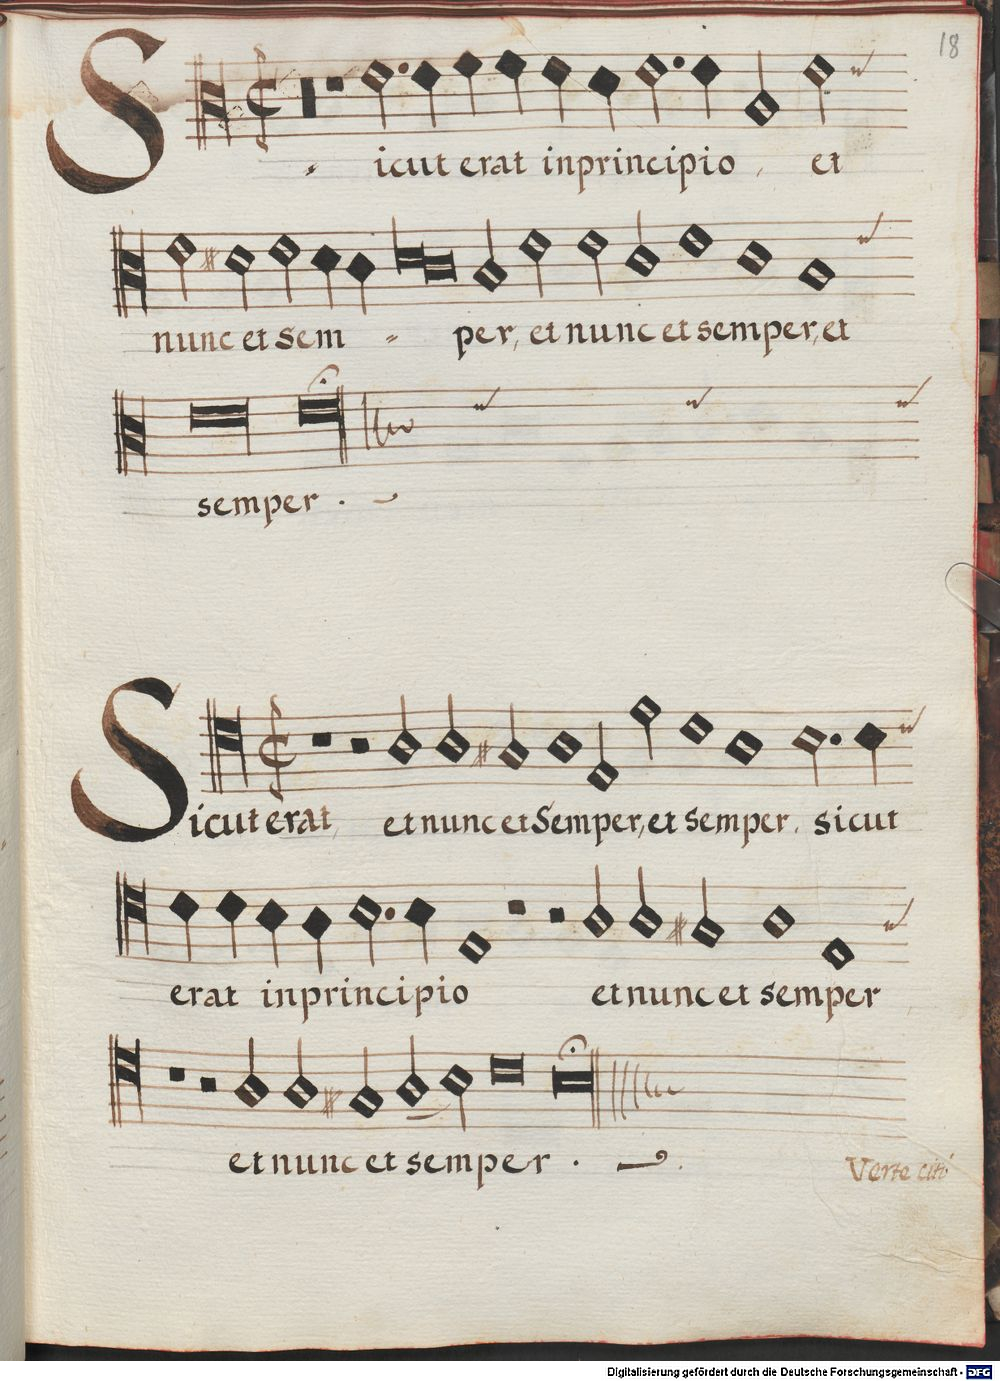 18
Sicut erat inprincipio, et
nunc et sem - per, et nunc et semper, et
semper.
Sicut erat, et nunc et Semper, et semper. sicut
erat inprincipio et nunc et semper
et nunc et semper.
Verte citò
Digitalisierung gefördert durch die Deutsche Forschungsgemeinschaft - DFG